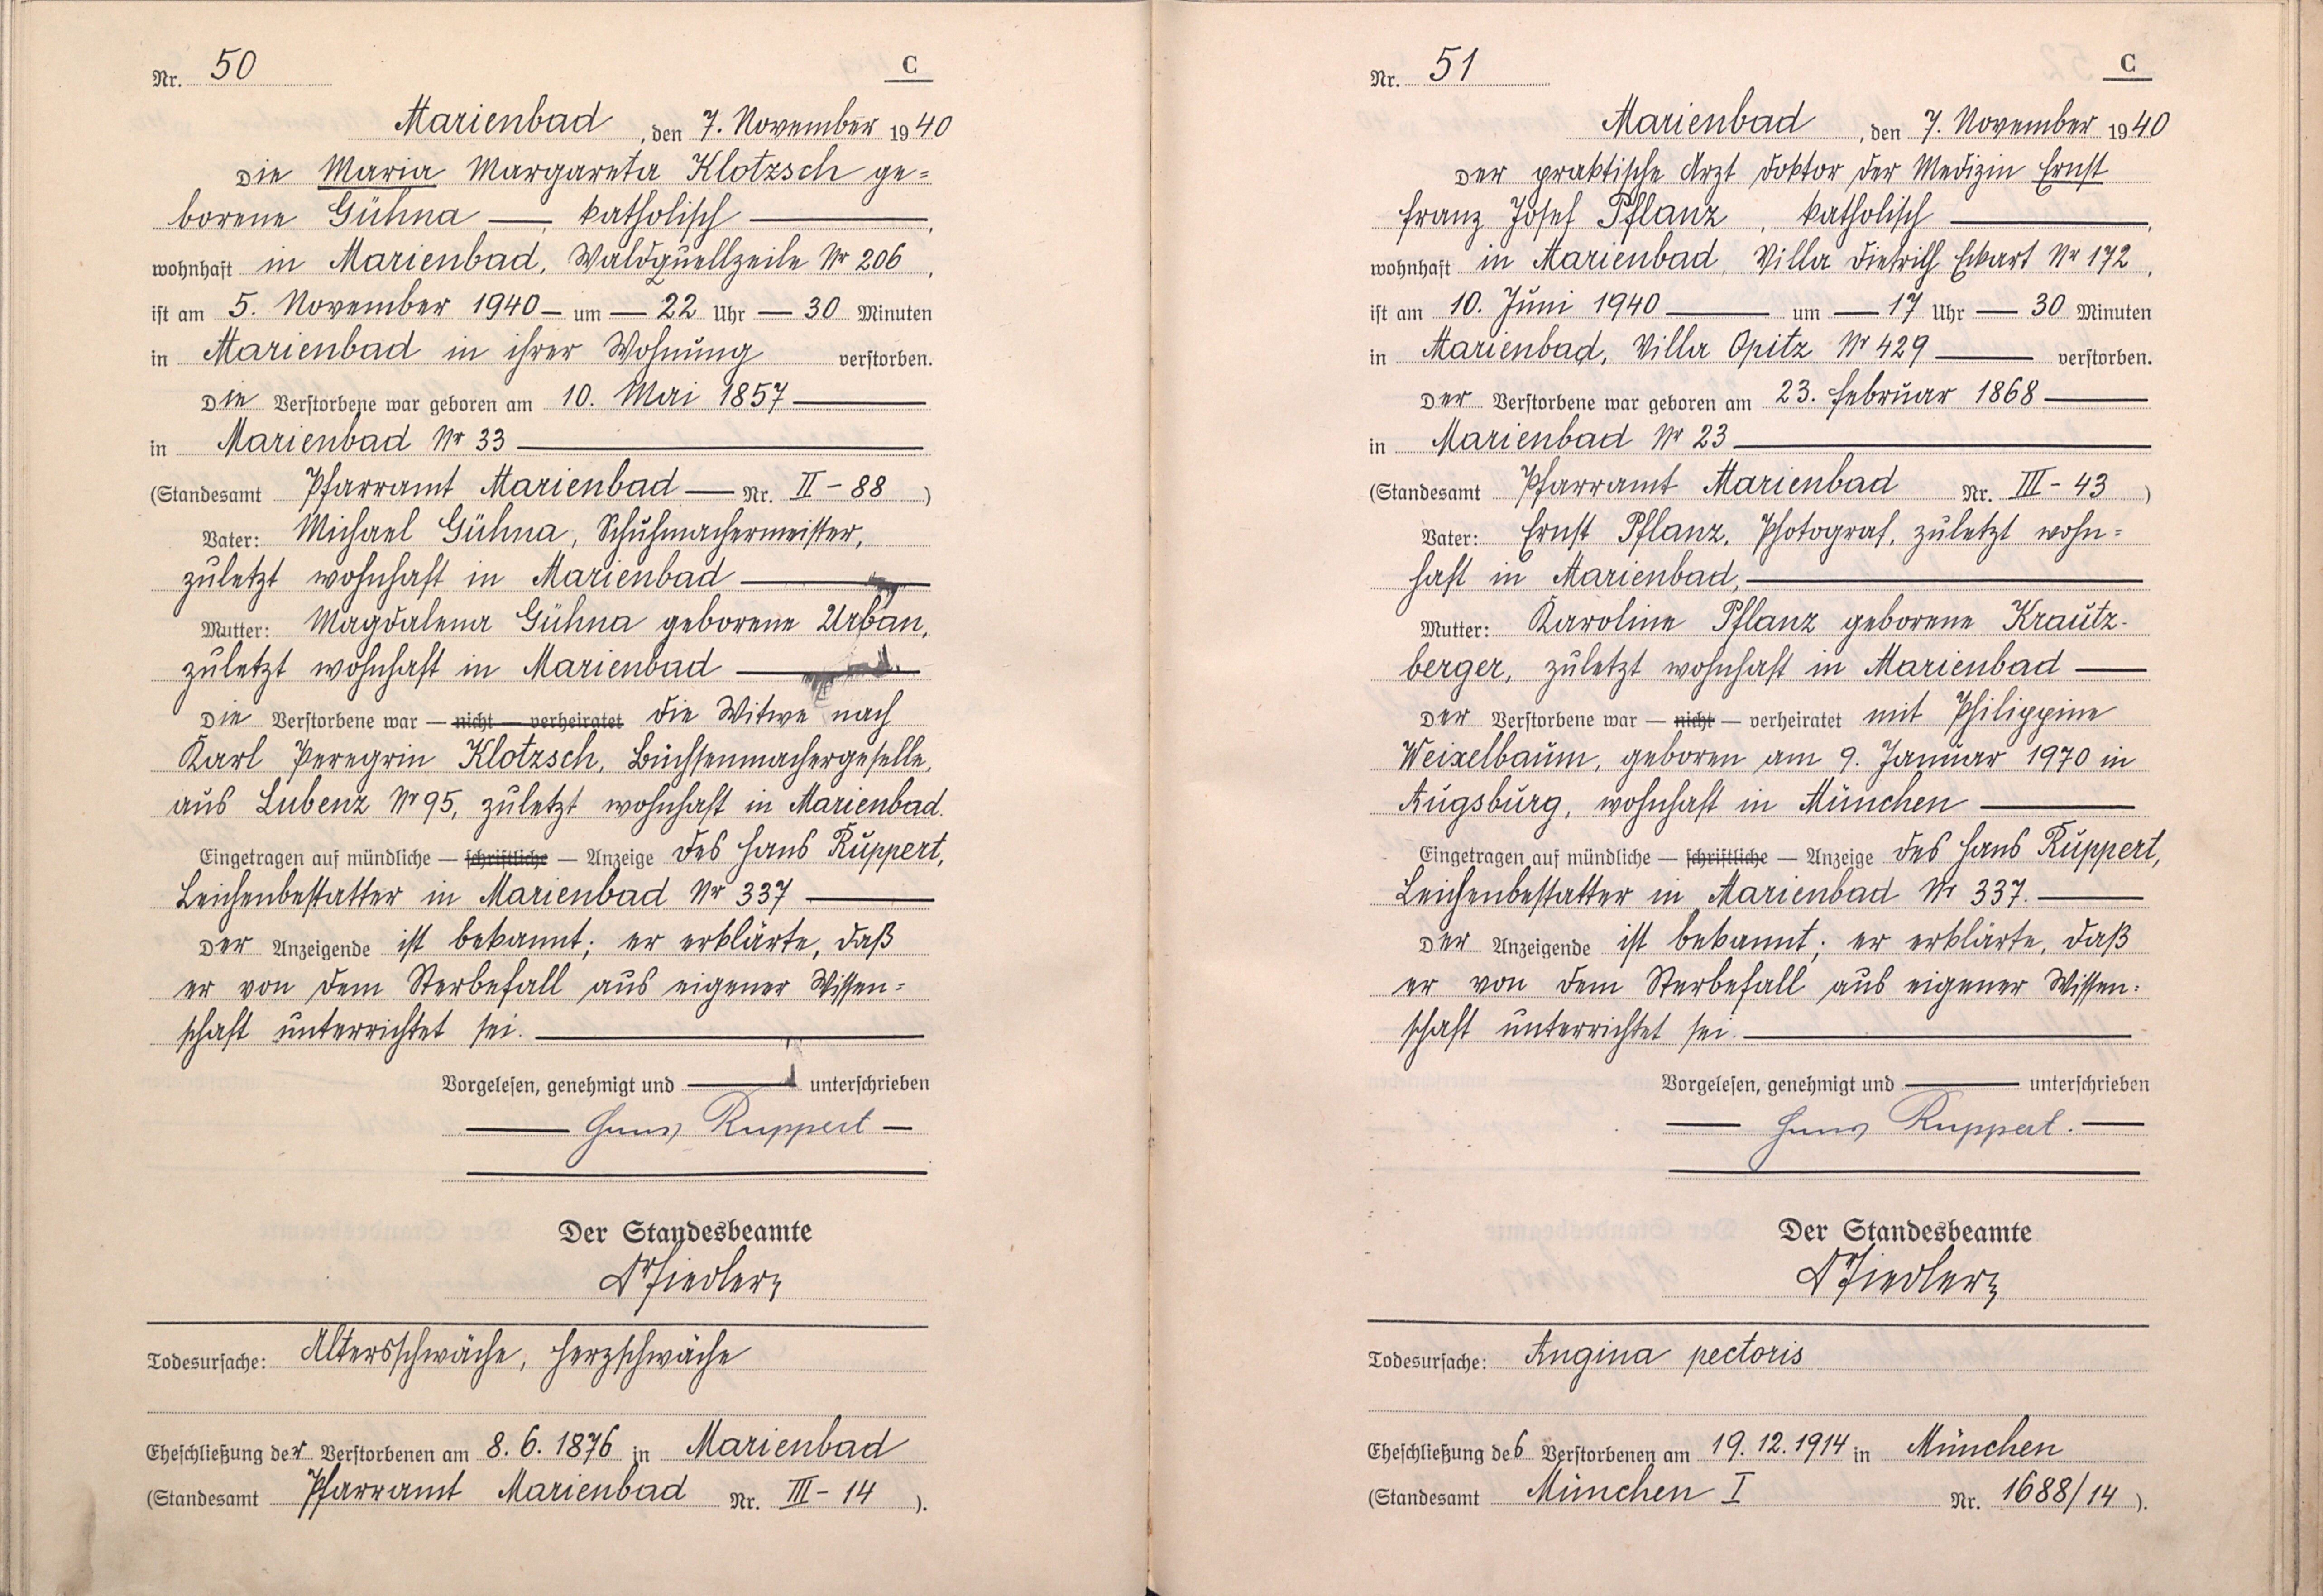 Nr. 50
C
Marienbad, den 7. November 1940
Die Maria Margareta Klotzsch ge=
borene Gühna —, katholisch —,
wohnhaft in Marienbad, Waldquellzeile Nr 206,
ist am 5. November 1940 — um — 22 Uhr — 30 Minuten
in Marienbad in ihrer Wohnung verstorben.
Die Verstorbene war geboren am 10. Mai 1857 —
in Marienbad Nr 33 —
(Standesamt Pfarramt Marienbad — Nr. II - 88)
Vater: Michael Gühna, Schuhmachermeister,
zuletzt wohnhaft in Marienbad —
Mutter: Magdalena Gühna geborene Urban,
zuletzt wohnhaft in Marienbad —
Die Verstorbene war — nicht — verheiratet die Witwe nach
Karl Peregrin Klotzsch, Büchsenmachergeselle,
aus Lubenz Nr 95, zuletzt wohnhaft in Marienbad.
Eingetragen auf mündliche — schriftliche — Anzeige des Hans Ruppert,
Leichenbestatter in Marienbad Nr 337 —
Der Anzeigende ist bekannt; er erklärte, daß
er von dem Sterbefall aus eigener Wissen=
schaft unterrichtet sei. —
Vorgelesen, genehmigt und — unterschrieben
— Hans Ruppert —
Der Standesbeamte
Dr Fiedler
Todesursache: Altersschwäche, Herzschwäche
Eheschließung der Verstorbenen am 8. 6. 1876 in Marienbad
(Standesamt Pfarramt Marienbad Nr. III - 14).
Nr. 51
C
Marienbad, den 7. November 1940
Der praktische Arzt Doktor der Medizin Ernst
Franz Josef Pflanz, katholisch —,
wohnhaft in Marienbad, Villa Dietrich Eckart Nr 172,
ist am 10. Juni 1940 — um — 17 Uhr — 30 Minuten
in Marienbad, Villa Opitz Nr 429 — verstorben.
Der Verstorbene war geboren am 23. Februar 1868 —
in Marienbad Nr 23 —
(Standesamt Pfarramt Marienbad Nr. III - 43)
Vater: Ernst Pflanz, Photograf, zuletzt wohn=
haft in Marienbad, —
Mutter: Karoline Pflanz geborene Krautz-
berger, zuletzt wohnhaft in Marienbad —
Der Verstorbene war — nicht — verheiratet mit Philippine
Weixelbaum, geboren am 9. Januar 1970 in
Augsburg, wohnhaft in München —
Eingetragen auf mündliche — schriftliche — Anzeige des Hans Ruppert,
Leichenbestatter in Marienbad Nr 337. —
Der Anzeigende ist bekannt; er erklärte, daß
er von dem Sterbefall aus eigener Wissen=
schaft unterrichtet sei. —
Vorgelesen, genehmigt und — unterschrieben
— Hans Ruppert. —
Der Standesbeamte
Dr Fiedler
Todesursache: Angina pectoris
Eheschließung des Verstorbenen am 19. 12. 1914 in München
(Standesamt München I Nr. 1688/14).